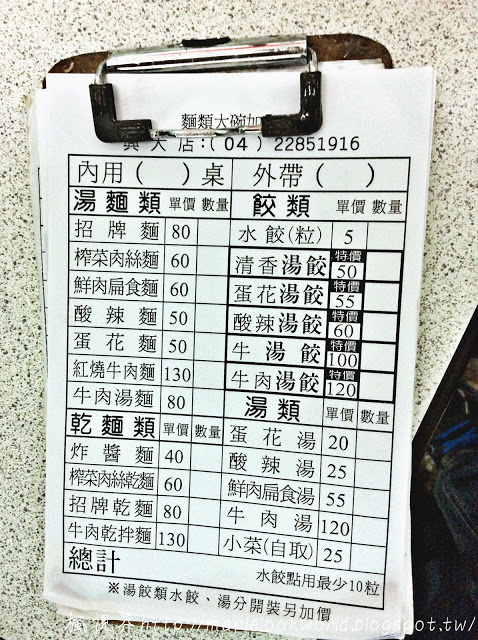 麵類大碗加
興大店:(04) 22851916
內用( )桌 外帶( )
湯麵類 單價 數量
招牌麵 80
榨菜肉絲麵 60
鮮肉扁食麵 60
酸辣麵 50
蛋花麵 50
紅燒牛肉麵 130
牛肉湯麵 80
乾麵類 單價 數量
炸醬麵 40
榨菜肉絲乾麵 60
招牌乾麵 80
牛肉乾拌麵 130
餃類 單價 數量
水餃(粒) 5
清香湯餃 特價 50
蛋花湯餃 特價 55
酸辣湯餃 特價 60
牛湯餃 特價 100
牛肉湯餃 特價 120
湯類 單價 數量
蛋花湯 20
酸辣湯 25
鮮肉扁食湯 55
牛肉湯 120
小菜(自取) 25
總計
水餃點用最少10粒
※湯餃類水餃、湯分開裝另加價
http://maplelookworld.blogspot.tw/